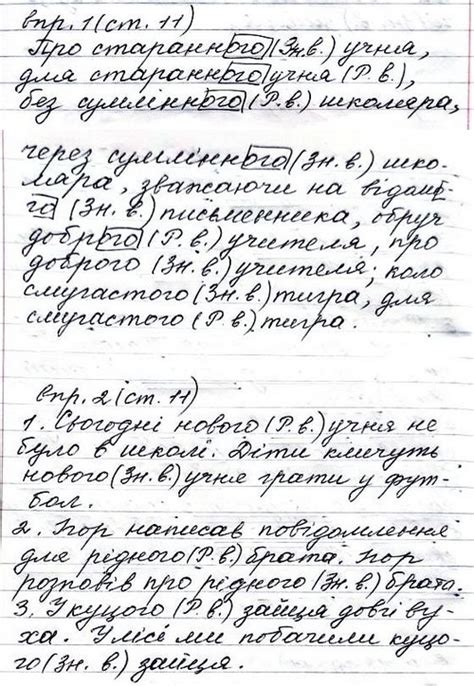 впр. 1 (ст. 11)
Про старанного (Зн. в.) учня,
для старанного учня (Р. в.),
без сумлінного (Р. в.) школяра,
через сумлінного (Зн. в.) шко-
ляра, зважаючи на відомо-
го (Зн. в.) письменника, обруч
доброго (Р. в.) учителя, про
доброго (Зн. в.) учителя; коло
смугастого (Зн. в.) тигра, для
смугастого (Р. в.) тигра.
впр. 2 (ст. 11)
1. Сьогодні нового (Р. в.) учня не
було в школі. Діти кличуть
нового (Зн. в.) учня грати у фут-
бол.
2. Ігор написав повідомлення
для рідного (Р. в.) брата. Ігор
розповів про рідного (Зн. в.) брата.
3. У куцого (Р. в.) зайця довгі ву-
ха. У лісі ми побачили куцо-
го (Зн. в.) зайця.